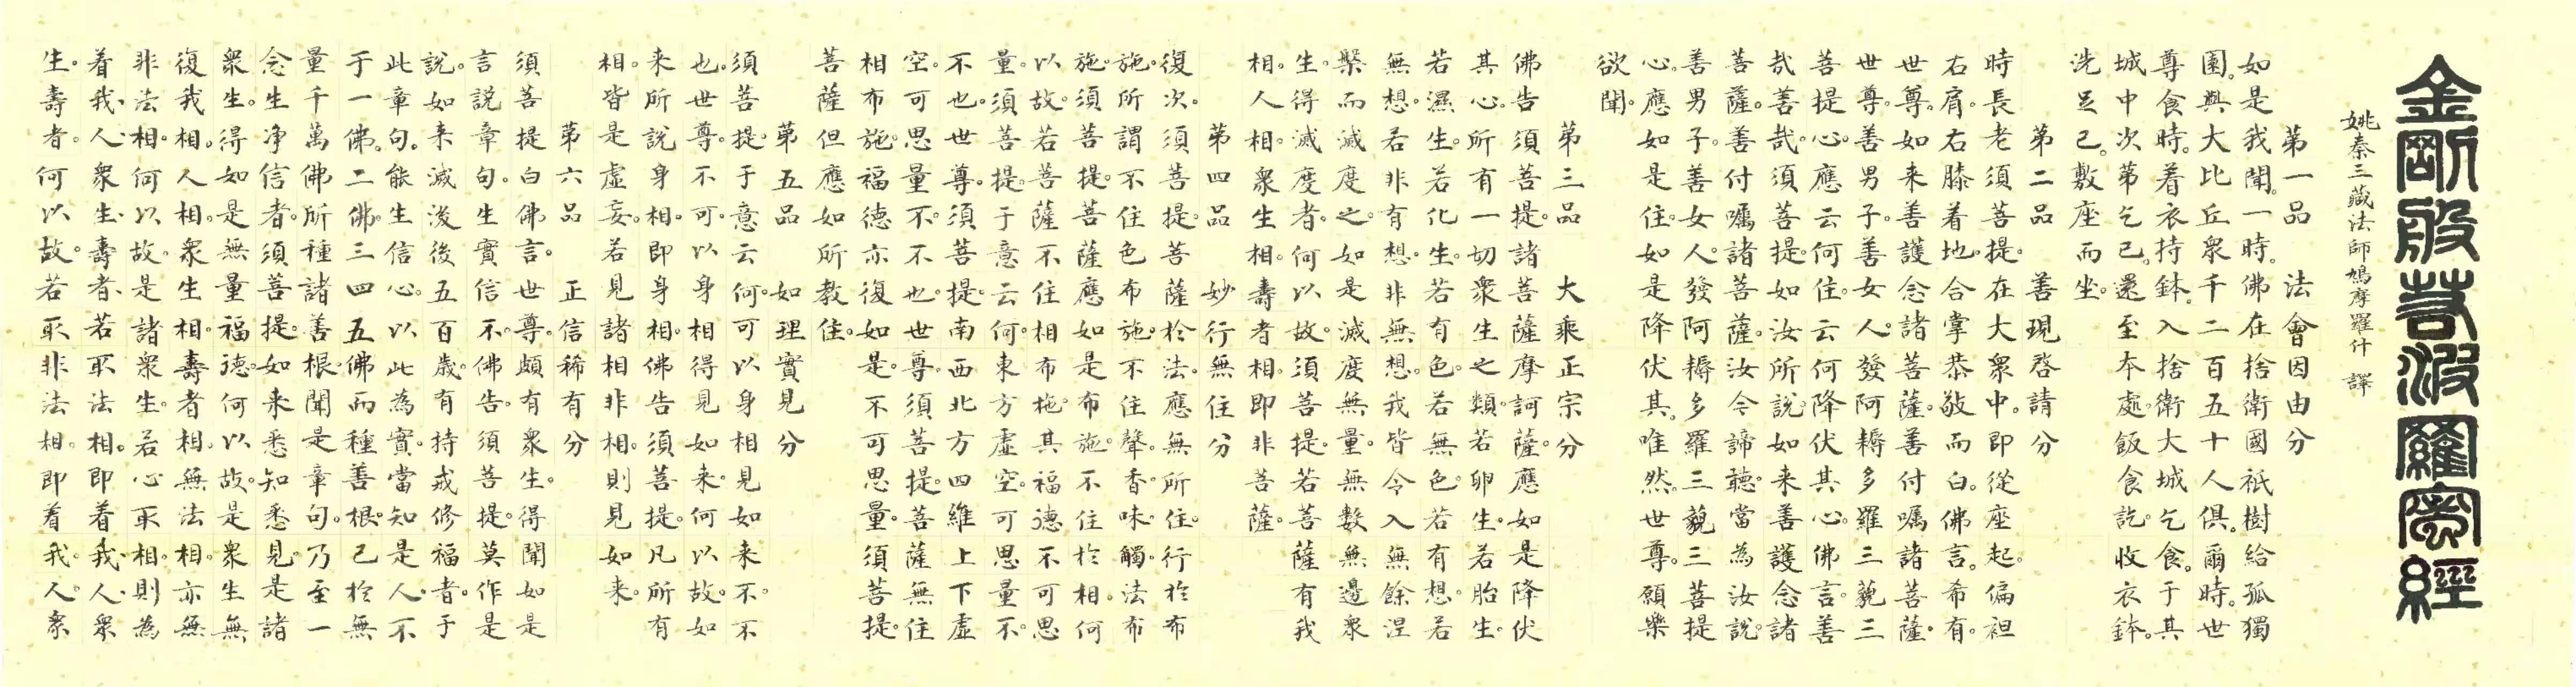 金剛般若波羅蜜經
姚秦三藏法師鳩摩羅什 譯
第一品 法會因由分
如是我聞。一時。佛在捨衛國祇樹給孤獨
園。與大比丘衆千二百五十人俱。爾時。世
尊食時。着衣持鉢。入捨衛大城乞食。于其
城中次第乞已。還至本處。飯食訖。收衣鉢。
洗足已。敷座而坐。
第二品 善現啓請分
時長老須菩提。在大衆中。即從座起。偏袒
右肩。右膝着地。合掌恭敬而白佛言。希有。
世尊。如来善護念諸菩薩。善付囑諸菩薩。
世尊。善男子。善女人。發阿耨多羅三藐三
菩提心。應云何住。云何降伏其心。佛言。善
哉善哉。須菩提。如汝所說。如来善護念諸
菩薩。善付囑諸菩薩。汝今諦聽。當為汝說。
善男子。善女人。發阿耨多羅三藐三菩提
心。應如是住。如是降伏其。唯然。世尊。願樂
欲聞。
第三品 大乘正宗分
佛告須菩提。諸菩薩摩訶薩。應如是降伏
其心。所有一切衆生之類。若卵生。若胎生。
若濕生。若化生。若有色。若無色。若有想。若
無想。若非有想。非無想。我皆令入無餘涅
槃而滅度之。如是滅度無量無數無邊衆
生。得滅度者。何以故。須菩提。若菩薩有我
相。人相。衆生相。壽者相。即非菩薩。
第四品 妙行無住分
復次。須菩提。菩薩於法。應無所住。行於布
施。所謂不住色布施。不住聲香味觸法布
施。須菩提。菩薩應如是布施。不住於相。何
以故。若菩薩不住相布施。其福德不可思
量。須菩提。于意云何。東方虛空。可思量不。
不也。世尊。須菩提。南西北方四維上下虛
空。可思量不。不也。世尊。須菩提。菩薩無住
相布施。福德亦復如是。不可思量。須菩提。
菩薩但應如所教住。
第五品 如理實見分
須菩提。于意云何。可以身相見如来不。不
也。世尊。不可以身相得見如来。何以故。如
来所說身相。即身相。佛告須菩提。凡所有
相。皆是虛妄。若見諸相非相。則見如来。
第六品 正信稀有分
須菩提白佛言。世尊。頗有衆生。得聞如是
言說章句。生實信不。佛告須菩提。莫作是
說。如来滅後後五百歲。有持戒修福者。于
此章句。能生信心。以此為實。當知是人。不
于一佛。二佛。三四五佛而種善根。已於無
量千萬佛所種諸善根。聞是章句。乃至一
念生淨信者。須菩提。如来悉知悉見。是諸
衆生。得如是無量福德。何以故。是衆生無
復我相。人相。衆生相。壽者相。無法相。亦無
非法相。何以故。是諸衆生。若心取相。則為
着我、人、衆生、壽者、若取法相。即着我、人、衆
生。壽者。何以故。若取非法相。即着我。人。衆